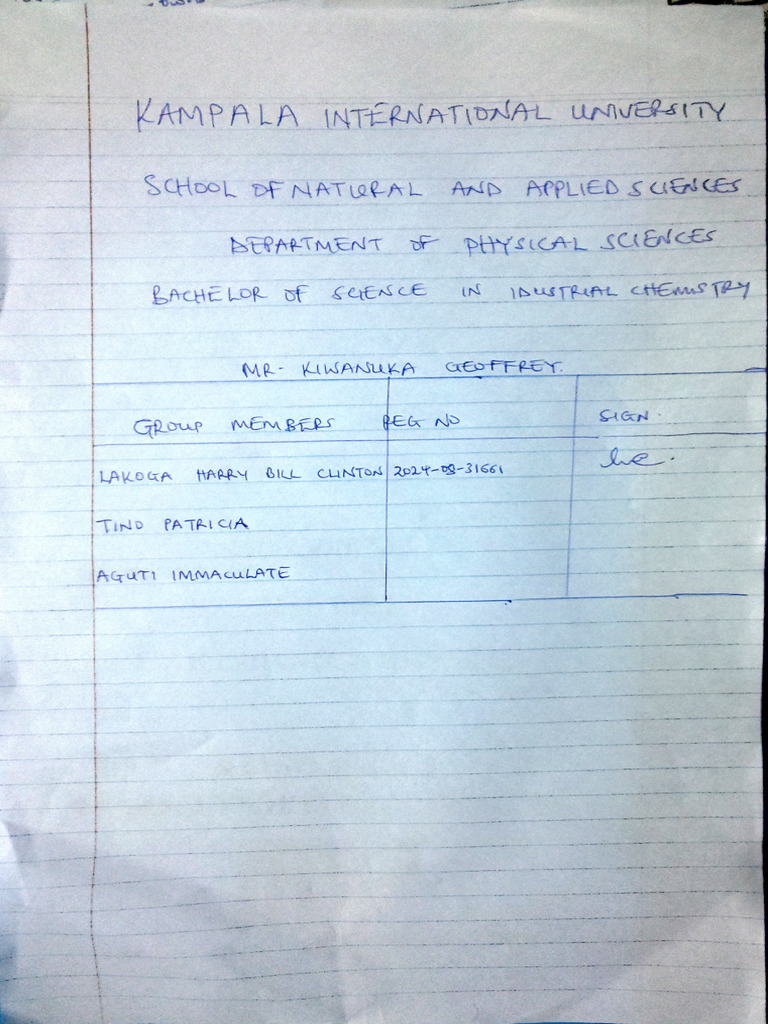 KAMPALA INTERNATIONAL UNIVERSITY
SCHOOL OF NATURAL AND APPLIED SCIENCES
DEPARTMENT OF PHYSICAL SCIENCES
BACHELOR OF SCIENCE IN IDUSTRIAL CHEMISTRY
MR- KIWANUKA GEOFFREY.
GROUP MEMBERS REG NO SIGN.
LAKOGA HARRY BILL CLINTON 2024-08-31661
TINO PATRICIA
AGUTI IMMACULATE